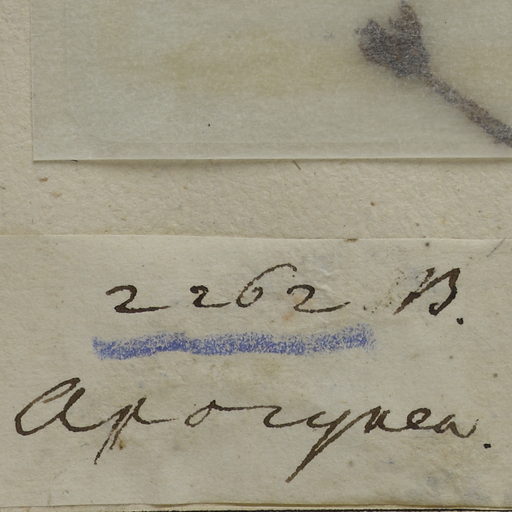 2262 B.
Apocynea.